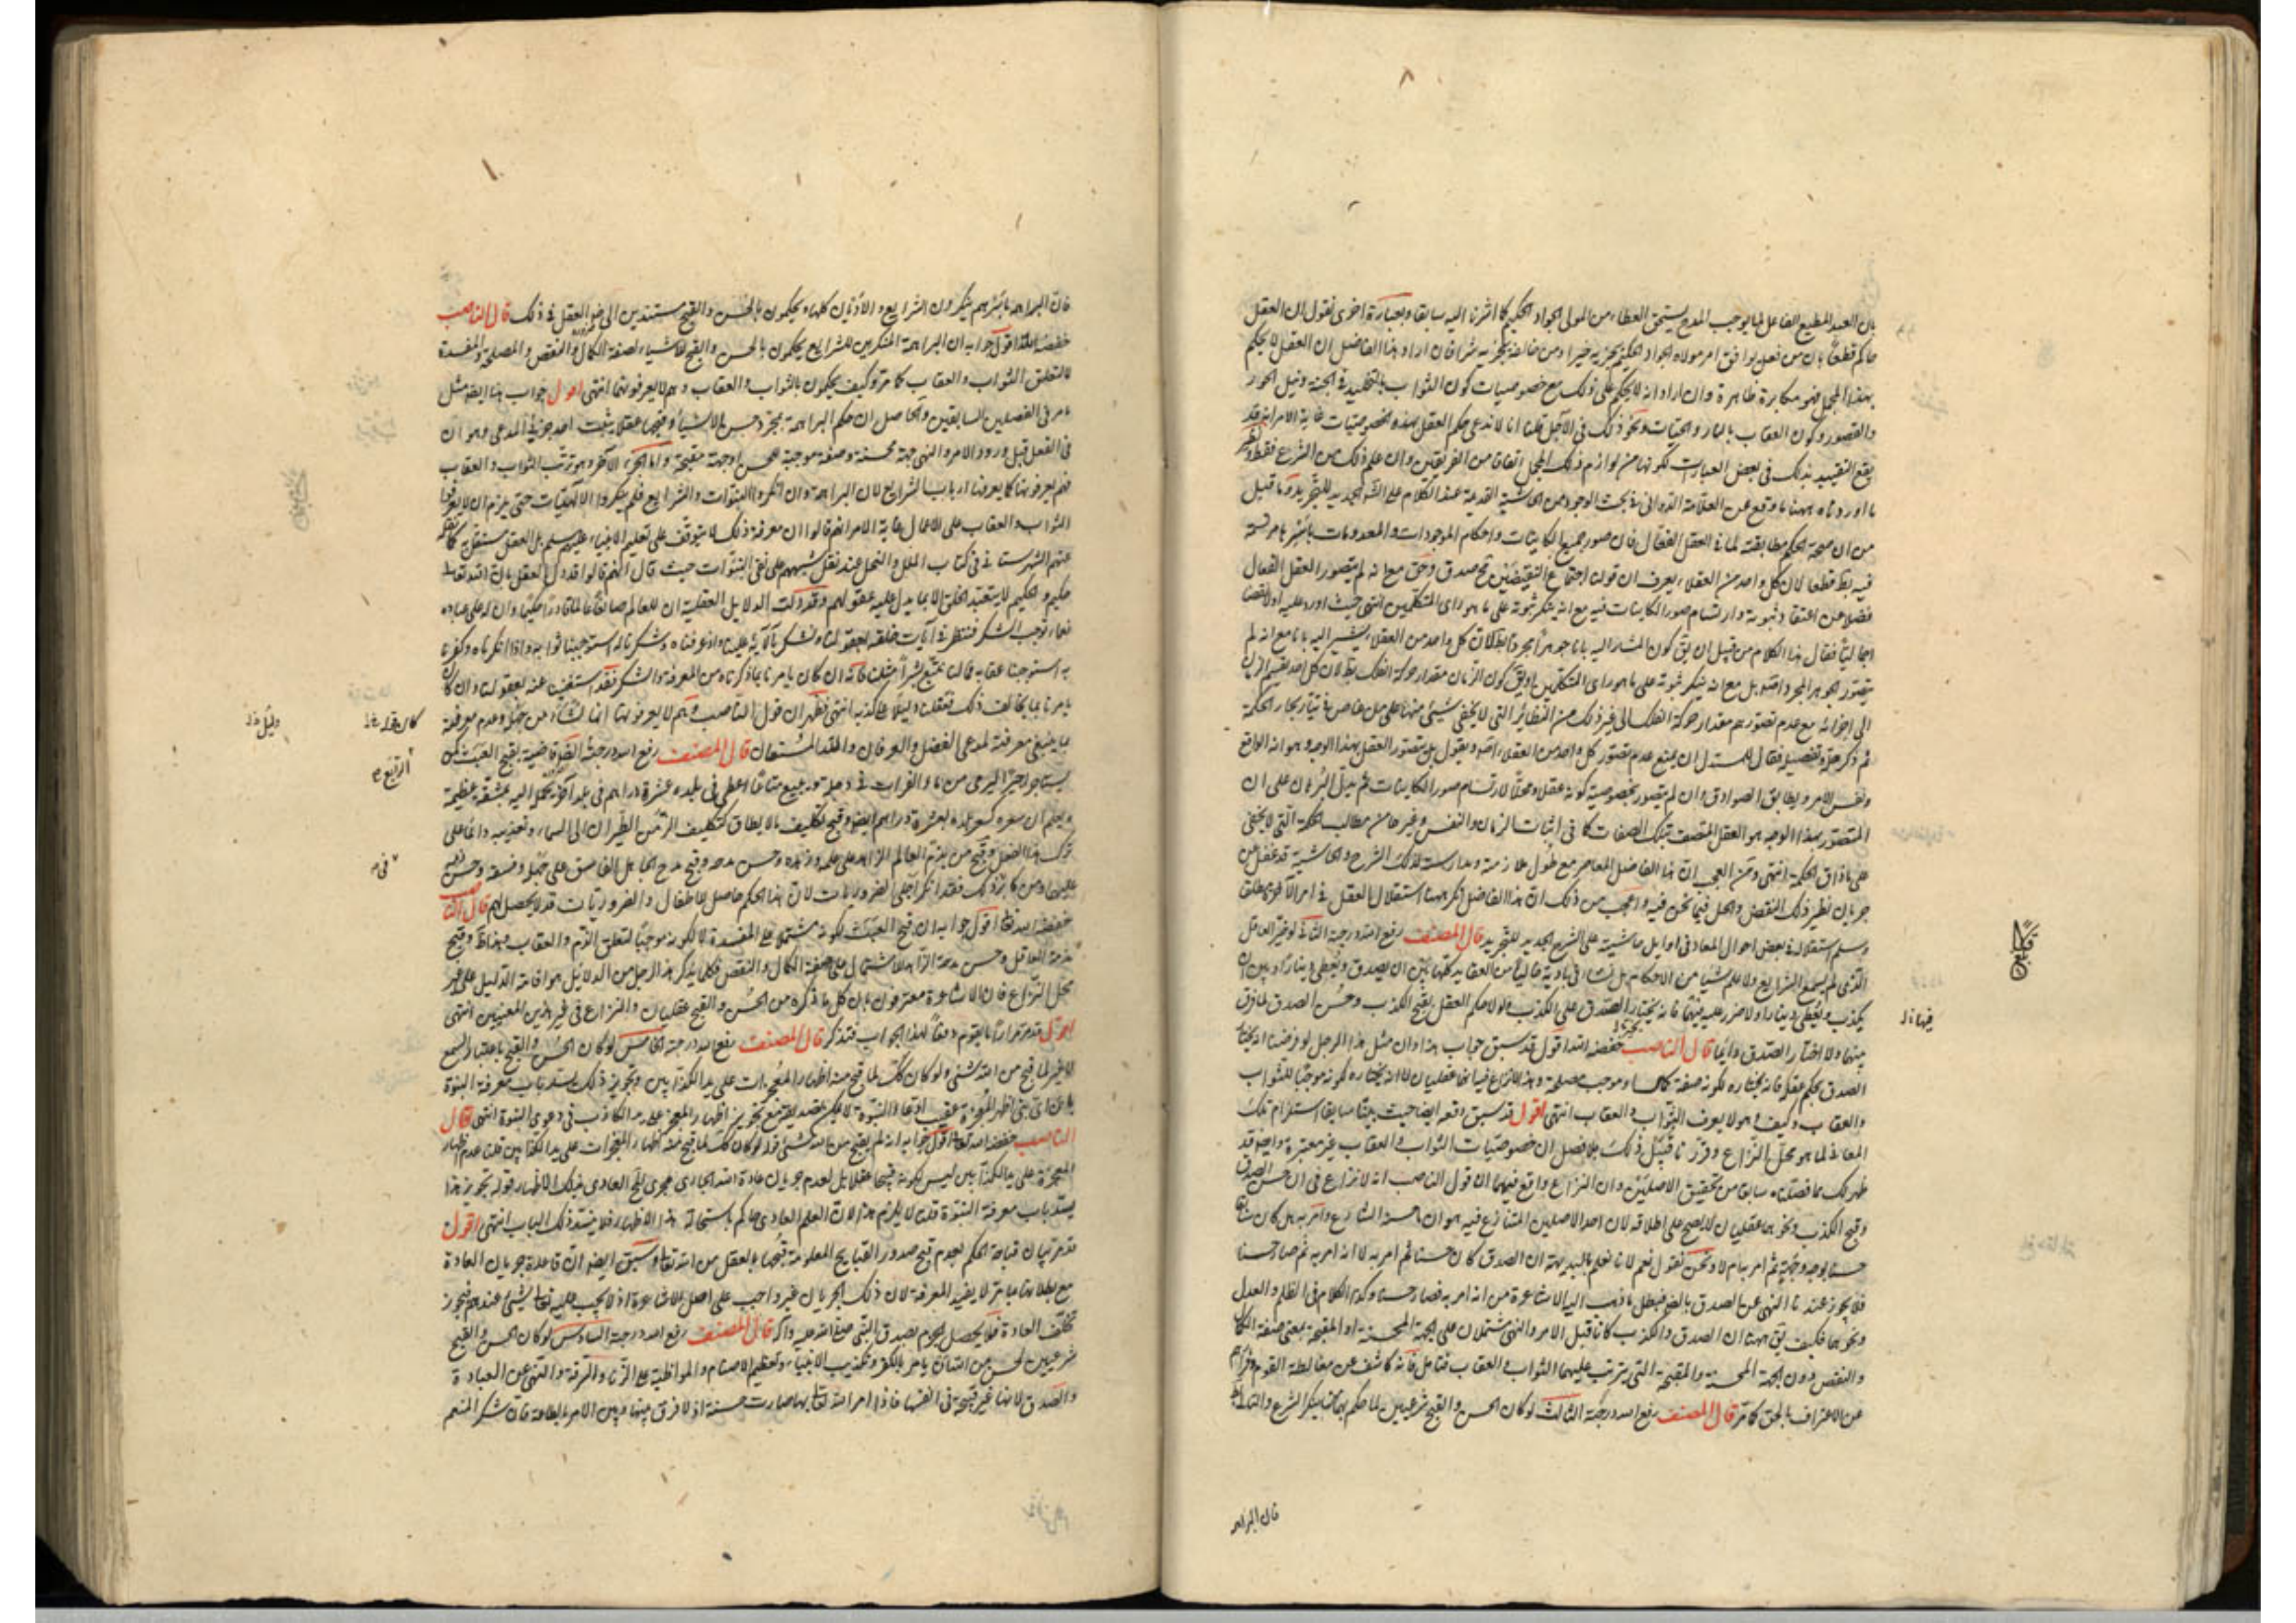 بان العبد المطيع الفاعل لما يوجب المدح يستحق العطاء من المولى الجواد الحكيم كما اشرنا اليه سابقا وبعبارة اخرى نقول ان العقل
حاكم قطعا بان من فعل يوافق امر مولاه الجواد الحكيم يجزيه خيرا ومن خالفه يجزيه شرا فان اراد هذا الفاضل ان العقل لا يحكم
بهذا المجمل فهو مكابرة ظاهرة وان اراد انه لا يحكم على ذلك مع خصوصيات كون الثواب بالتخليد في الجنة ونيل الحور
والقصور وكون العقاب بالنار والحيات ونحو ذلك في الآجل قلنا انا لا ندعى حكم العقل بهذه الخصوصيات غاية الامر انه قد
يقع التقييد بذلك في بعض العبارات لكونها من لوازم ذلك المجمل اتفاقا من الفريقين وان علم ذلك من الشرع فقط ونظير
ما اوردناه ههنا ما وقع عن العلامة الدواني في بحث الوجود من الحاشية القديمة عند الكلام على الشرح الجديد للتجريد وما قيل
من ان صحة الحكم مطابقته لما في العقل الفعال فان صور جميع الكاينات واحكام الموجودات والمعدومات باسرها مرتسمة
فيه بط قطعا لان كل واحد من العقلاء يعرف ان قولنا اجتماع النقيضين مح صدق وحق مع انه لم يتصور العقل الفعال
فضلا عن اعتقاد ثبوته وارتسام صور الكاينات فيه مع انه ينكر ثبوته على ما هو راى المتكلمين انتهى حيث اورد عليه اولا نقضا
اجماليا فقال هذا الكلام من قبيل ان يق كون المشار اليه بانا جوهرا مجردا بط لان كل واحد من العقلاء يشير اليه بانا مع انه لم
يتصور الجوهر المجرد اصلا بل مع انه ينكر ثبوته على ما هو راى المتكلمين او يق كون الزمان مقدار حركة الفلك بط لان كل احد يقسم الزمان
الى اجزائه مع عدم تصورهم مقدار حركة الفلك الى غير ذلك من النظائر التى لا يخفى شيئ منها على من خاض في تيار بحار الحكمة
ثم ذكر حله وتفصيل فقال للمستدل ان يمنع عدم تصور كل واحد من العقلاء اياه ويقول بل يتصور العقل بهذا الوجه وهو انه الواقع
ونفس الامر ويطابق الصوادق وان لم يتصور بخصوصية كونه عقلا ومحلا لارتسام صور الكاينات ثم يدل البرهان على ان
المتصور بهذا الوجه هو العقل المتصف بتلك الصفات كما في اثبات الزمان والنفس وغيرها من مطالب الحكمة التى لا يخفى
على ماذاق الحكمة انتهى ومن العجب ان هذا الفاضل المعاصر مع طول ملازمته ومدارسته لذلك الشرح والحاشية قد غفل عن
جريان نظير ذلك النقض والحل فيما نحن فيه واعجب من ذلك ان هذا الفاضل انكر ههنا استقلال العقل في امر الآخرة مطلقا
وسلم استقلاله في بعض احوال المعاد في اوايل حاشيته على الشرح الجديد للتجريد قال المصنف رفع الله درجته الثانى لو خير العاقل
الذى لم يسمع الشرايع ولا علم شيئا من الاحكام بل نشا في بادية خاليا من العقايد كلها بين ان يصدق ويعطى دينارا وبين ان
يكذب ويعطى دينارا ولا ضرر عليه فيهما فانه يختار الصدق على الكذب ولولا حكم العقل بقبح الكذب وحسن الصدق لما فرق
بينهما ولا اختار الصدق دائما قال الناصب خفضه الله اقول قد سبق جواب هذا وان مثل هذا الرجل لو فرضنا انه يختار
الصدق بحكم عقله فانه يختاره لكونه صفة كمال او موجب مصلحة وهذا لا نزاع فيه انهما عقليان لا انه يختاره لكونه موجبا للثواب
والعقاب وكيف وهو لا يعرف الثواب والعقاب انتهى اقول قد سبق دفعه ايضا حيث بينا سابقا استلزام تلك
المعانى لما هو محل النزاع وقررنا قبيل ذلك بلا فصل ان خصوصيات الثواب والعقاب غير معتبرة وايضا قد
ظهر لك مما فصلناه سابقا من تحقيق الاصلين وان النزاع واقع فيهما ان قول الناصب انه لا نزاع في ان حسن الصدق
وقبح الكذب ونحوهما عقليان لا يصح على اطلاقه لان احد الاصلين المتنازع فيه هو ان ما حسنه الشارع وامر به هل كان سابقا
حسنا بوجه وجهة ثم امر به ام لا ونحن نقول نعم لانا نعلم بالبديهة ان الصدق كان حسنا ثم امر به لا انه امر به ثم صار حسنا
فلا يجوز عندنا النهى عن الصدق بالضرورة فبطل ما ذهب اليه الاشاعرة من انه امر به فصار حسنا وكذا الكلام في الظلم والعدل
ونحوهما فكيف يق ههنا ان الصدق والكذب كانا قبل الامر والنهى مشتملان على الجهة المحسنة او المقبحة بمعنى صفة الكمال
والنقص دون الجهة المحسنة والمقبحة التى يترتب عليهما الثواب والعقاب فتامل فانه كاشف عن مغالطة القوم وفرارهم
عن الاعتراف بالحق كما مر قال المصنف رفع الله درجته الثالث لو كان الحسن والقبح شرعيين لما حكم بهما من ينكر الشرع والتالى بط
فان البراهمة
فيها نل
قبلنا
فان البراهمة باسرهم ينكرون الشرايع والاديان كلها ويحكمون بالحسن والقبح مستندين الى ضرورة العقل في ذلك قال الناصب
خفضه الله اقول جوابه ان البراهمة المنكرين للشرايع يحكمون بالحسن والقبح للاشياء لصفة الكمال والنقص والمصلحة والمفسدة
لا لتعلق الثواب والعقاب كما مر وكيف يحكمون بالثواب والعقاب وهم لا يعرفونهما انتهى اقول جواب هذا ايضا مثل
ما مر في الفصلين السابقين والحاصل ان حكم البراهمة بمجرد حسن الاشياء وقبحها عقلا يثبت احد جزئي المدعى وهو ان
في الفعل قبل ورود الامر والنهى جهة محسنة وصفة موجبة للحسن او جهة مقبحة واما الجزء الآخر وهو ترتب الثواب والعقاب
فهم يعرفونها كما يعرفها ارباب الشرايع لان البراهمة وان انكروا النبوات والشرايع فلم ينكروا الالهيات حتى يلزم ان لا يعرفوا
الثواب والعقاب على الاعمال غاية الامر انهم قالوا ان معرفة ذلك لا يتوقف على تعليم الانبياء عليهم السلام بل العقل مستقل به كما نقله
عنهم الشهرستاني في كتاب الملل والنحل عند نقل شبههم على نفى النبوات حيث قال انهم قالوا قد دل العقل بان الله تعالى
حكيم والحكيم لا يتعبد الخلق الا بما يدل عليه عقولهم وقد دلت الدلايل العقلية ان للعالم صانعا عالما قادرا حكيما وان له على عباده
نعما توجب الشكر فننظر في آيات خلقه بعقولنا ونشكره بآلايه علينا واذا عرفناه وشكرنا له استوجبنا ثوابه واذا انكرناه وكفرنا
به استوجبنا عقابه فما لنا نتبع بشرا مثلنا فانه ان كان يامرنا بما ذكرناه من المعرفة والشكر فقد استغنينا عنه بعقولنا وان كان
يامرنا بما يخالف ذلك فعقلنا دليلا على كذبه انتهى فظهر ان قول الناصب وهم لا يعرفونها انما نشأ من جهله وعدم معرفته
بما ينبغي معرفته لمدعى الفضل والعرفان والله المستعان قال المصنف رفع الله درجته الضرورة قاضية بقبح العبث كمن
يستاجر اجيرا ليرمى من ماء الفرات في دجلة ويبيع متاعا اعطى في بلده عشرة دراهم في بلد آخر يحمله اليه بمشقة عظيمة
ويعلم ان سعره كسعر بلده بعشرة دراهم ايضا وقبح تكليف ما لا يطاق كتكليف الزمن الطيران الى السماء وتعذيبه دائما على
ترك هذا الفعل وقبح من يذم العالم الزاهد على علمه وزهده وحسن مدحه وقبح مدح الجاهل الفاسق على جهله وفسقه وحسن ذمه
عليهما ومن كابر في ذلك فقد انكر اجلى الضروريات لان هذا الحكم حاصل للاطفال والضروريات قد لا يحصل لهم قال الناصب
خفضه الله تعالى اقول جوابه ان قبح العبث لكونه مشتملا على المفسدة لا لكونه موجبا لتعلق الذم والعقاب وهذا ظاهر وقبح
مذمة العاقل وحسن مدحة الزاهد للاشتمال على صفة الكمال والنقص فكل ما يذكر هذا الرجل من الدلائل هو اقامة الدليل على غير
محل النزاع فان الاشاعرة معترفون بان كل ما ذكره من الحسن والقبح عقليان والنزاع في غير هذين المعنيين انتهى
اقول قد مر مرارا ما يقوم دفعا لهذا الجواب فتذكر قال المصنف رفع الله درجته الخامس لو كان الحسن والقبح باعتبار السمع
لا غير لما قبح من الله شئ ولو كان كذلك لما قبح منه اظهار المعجزات على يد الكذابين وتجويز ذلك يسد باب معرفة النبوة
فان اى نبى اظهر المعجزة عقيب ادعاء النبوة لا يمكن تصديقه مع تجويز اظهار المعجز على يد الكاذب في دعوى النبوة انتهى قال
الناصب خفضه الله تعالى اقول جوابه انه لم يقبح من الله شئ قوله لو كان كذلك لما قبح منه اظهار المعجزات على يد الكذابين قلنا عدم اظهار
المعجزة على يد الكذابين ليس لكونه قبيحا عقلا بل لعدم جريان عادة الله الجارى مجرى المح العادى بذلك الاظهار قوله تجويز هذا
يسد باب معرفة النبوة قلنا لا يلزم هذا لان العلم العادى حاكم باستحالة هذا الاظهار فلا ينسد ذلك الباب انتهى اقول
قد مر بيان قباحة الحكم بعدم قبح صدور القبايح المعلومة قبحها بالعقل من الله تعالى وسبق ايضا ان قاعدة جريان العادة
مع بطلانها بما مر لا يفيد المعرفة لان ذلك الجريان غير واجب على اصل الاشاعرة اذ لا يجب عليه تعالى شئ عندهم فيجوز
تخلف العادة فلا يحصل الجزم بصدق النبى صلى الله عليه وآله قال المصنف رفع الله درجته السادس لو كان الحسن والقبح
شرعيين لحسن من الله ان يامر بالكفر وتكذيب الانبياء وتعظيم الاصنام والمواظبة على الزنا والسرقة والنهى عن العبادة
والصدق لانها غير قبيحة في انفسها فاذا امر الله تعالى بها صارت حسنة اذ لا فرق بينها وبين الامر بالطاعة فان شكر المنعم
دليل نل
الرابع
في